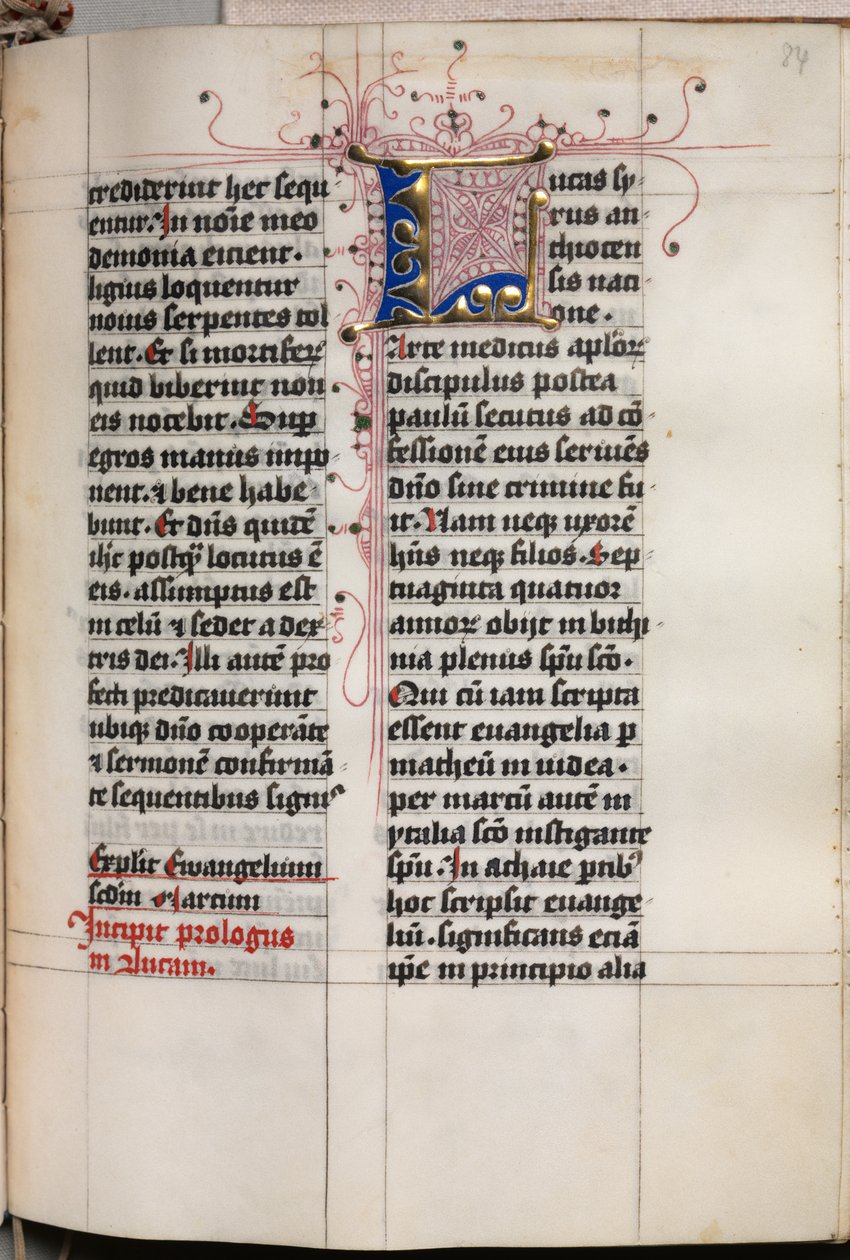 84
crediderint hec sequ
entur. In noīe meo
demonia eicient.
liguis loquentur
nouis serpentes tol
lent. Et si mortiferꝝ
quid biberint non
eis nocebit. Sup̄
egros manus impo
nent. ⁊ bene habe
bunt. Et dn̄s quidē
ihc̄ postqȝ̄ locutus ē
eis. assumptus est
in celū ⁊ seder a dex
tris dei. Illi autē pro
fecti predicauerunt
ubiqȝ dn̄o cooperāte
⁊ sermonē confirmā
te sequentibus signis
Explic̄ Ewangelium
scd̄m Marcum
Incipit prologus
in Lucam.
Lucas sy
rus an
thiocen
sis nati
one.
Arte medicus apl̄oꝝ
discipulus postea
paulū secutus ad cō
fessionē eius seruiēs
dn̄o sine crimine fu
it. Nam neqȝ uxorē
hn̄s neqȝ filios. Sep
tuaginta quatuor
annoꝝ obijt in bithi
nia plenus sp̄u sc̄o.
Qui cū iam scripta
essent euangelia ꝑ
matheū in iudea.
per marcū autē in
ytalia sc̄o instigante
sp̄u. In achaie ptibꝰ
hoc scripsit euange
liū. significans etiā
ip̄e in principio alia